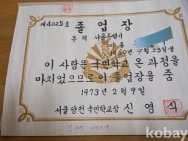 제4025호
졸업장
본적 서울특별시
9월 23일생
이 사람은 국민학교 온 과정을
마치었으므로 이 졸업장을 줌
1973년 2월 9일
국민학교장 신영식
kobay